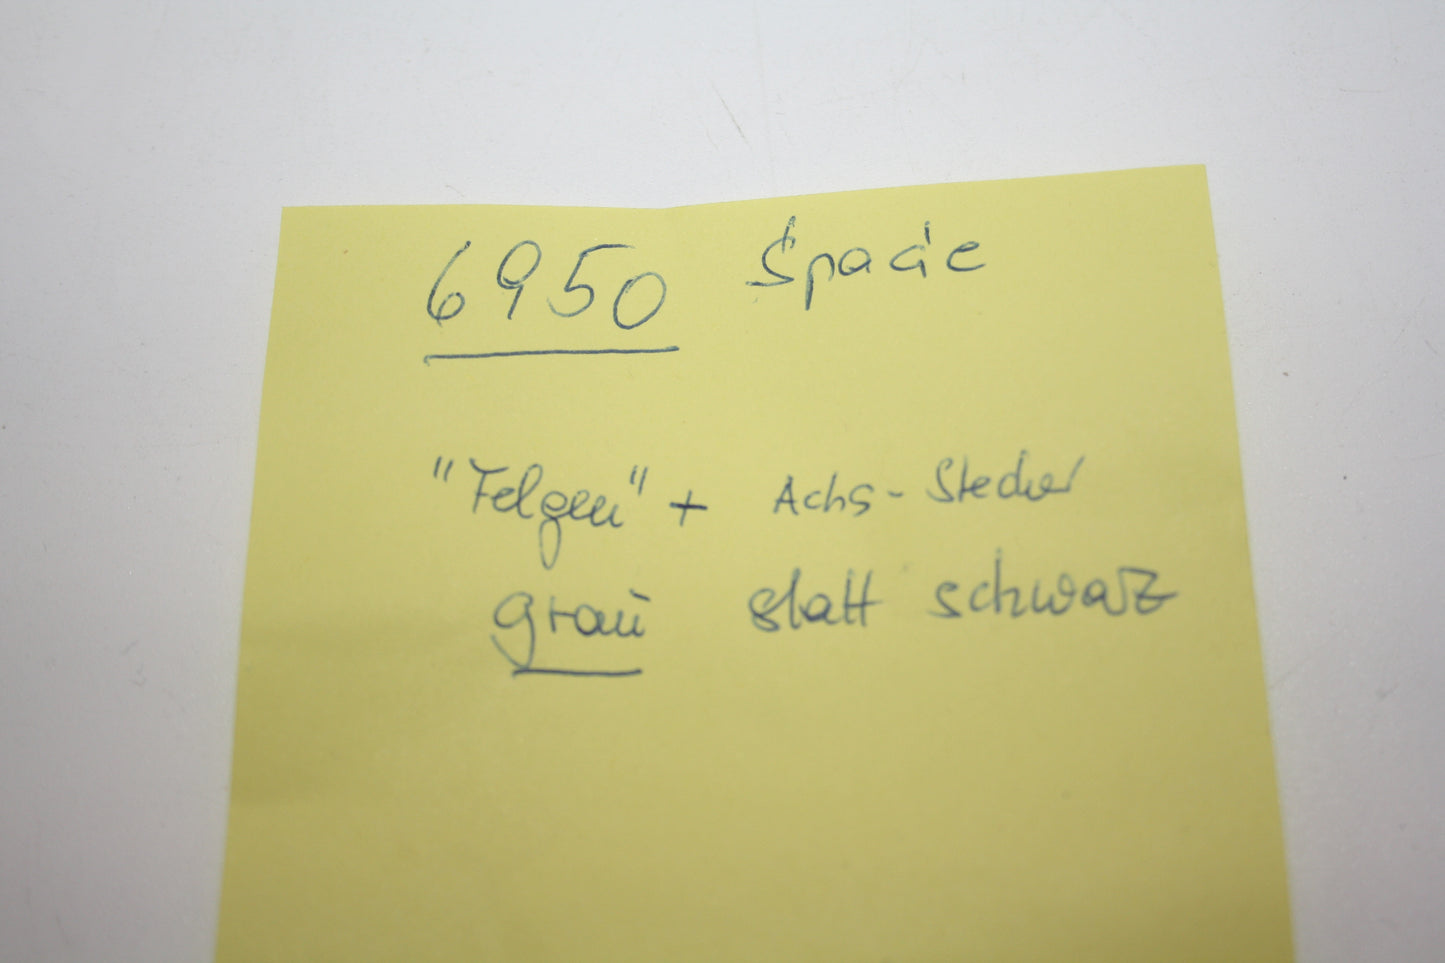 6950 Spacie
"Felgen" + Achs-Stecker
grau statt schwarz